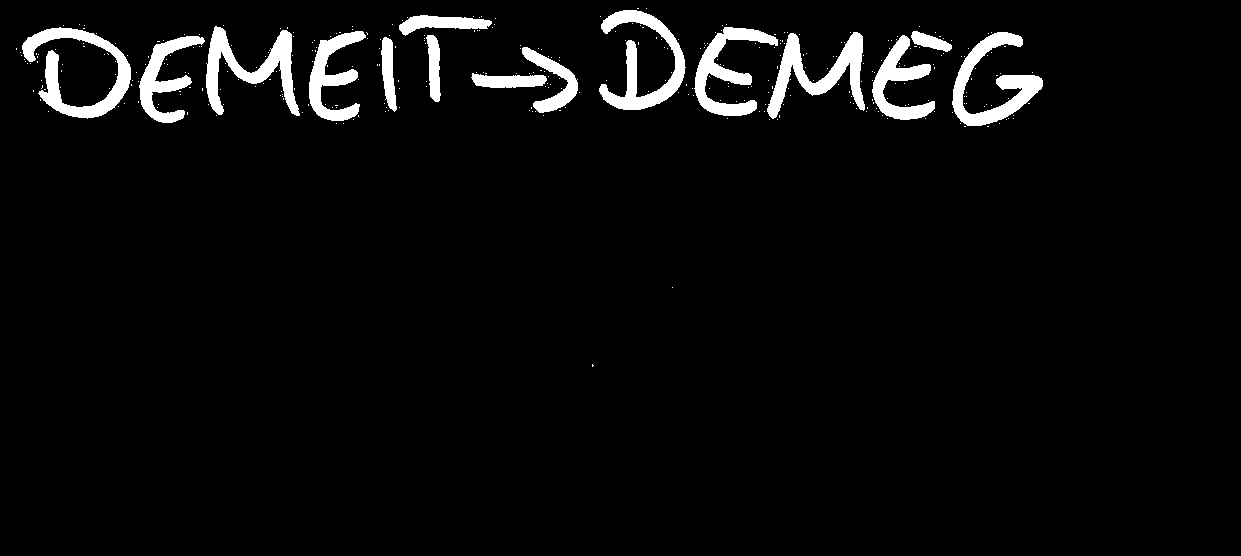 DEMEIT → DEMEG